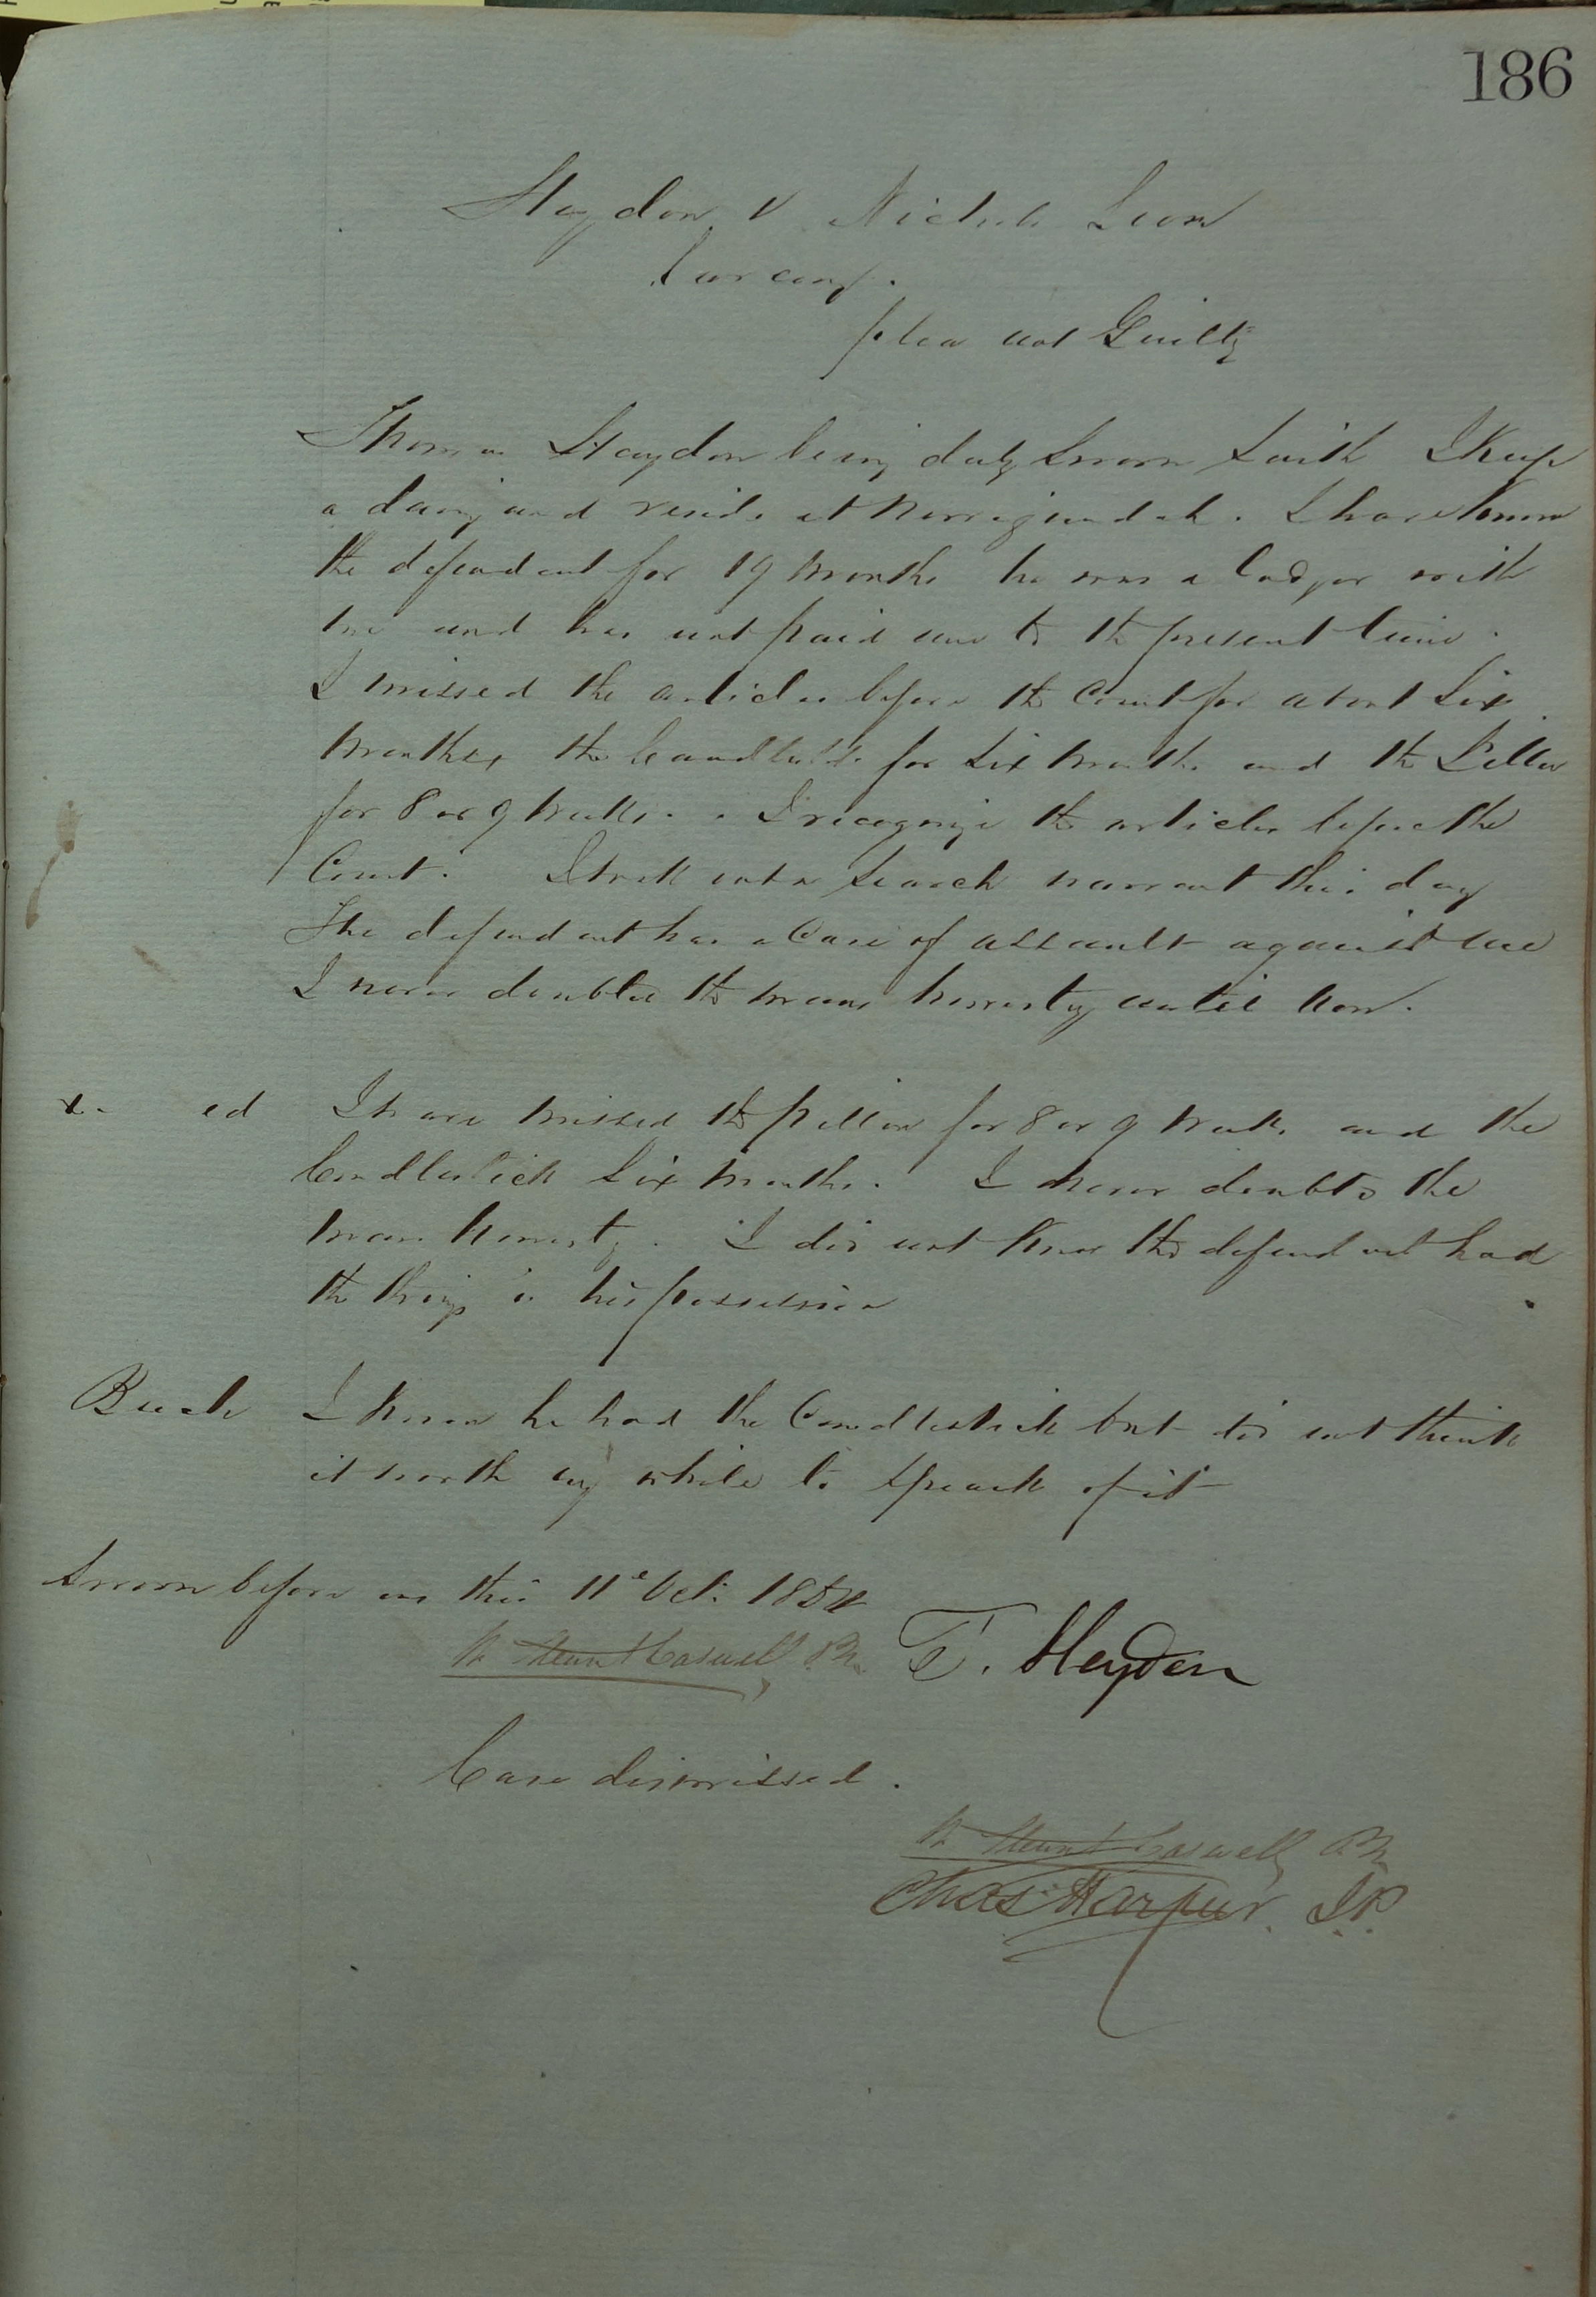 186
Heydon V Nichols Leon
Larceny.
plea not Guilty
Thomas Haydon being duly Sworn Saith I Keep
a dairy and reside at Nerrigundah. I have Known
the defendant for 19 Months he was a Lodger with
me and has not paid me to the present time.
I missed the articles before the Court for about Six
Months, the Candlestick for Six Months and the Pillow
for 8 or 9 Weeks. I recognize the articles before the
Court. I took out a Search warrant this day
The defendant has a Case of assault against me
I never doubted the mans honesty until now.
ed I have missed the pillow for 8 or 9 Weeks and the
Candlestick Six Months. I never doubted the
mans honesty. I did not Know the defendant had
the things in his possession
Bench I Knew he had the Candlestick but did not think
it worth my while to Speak of it
Sworn before me this 11 Oct
Caswell PM T. Heydon
Case dismissed.
Caswell PM
Chas Harpur. J.P.